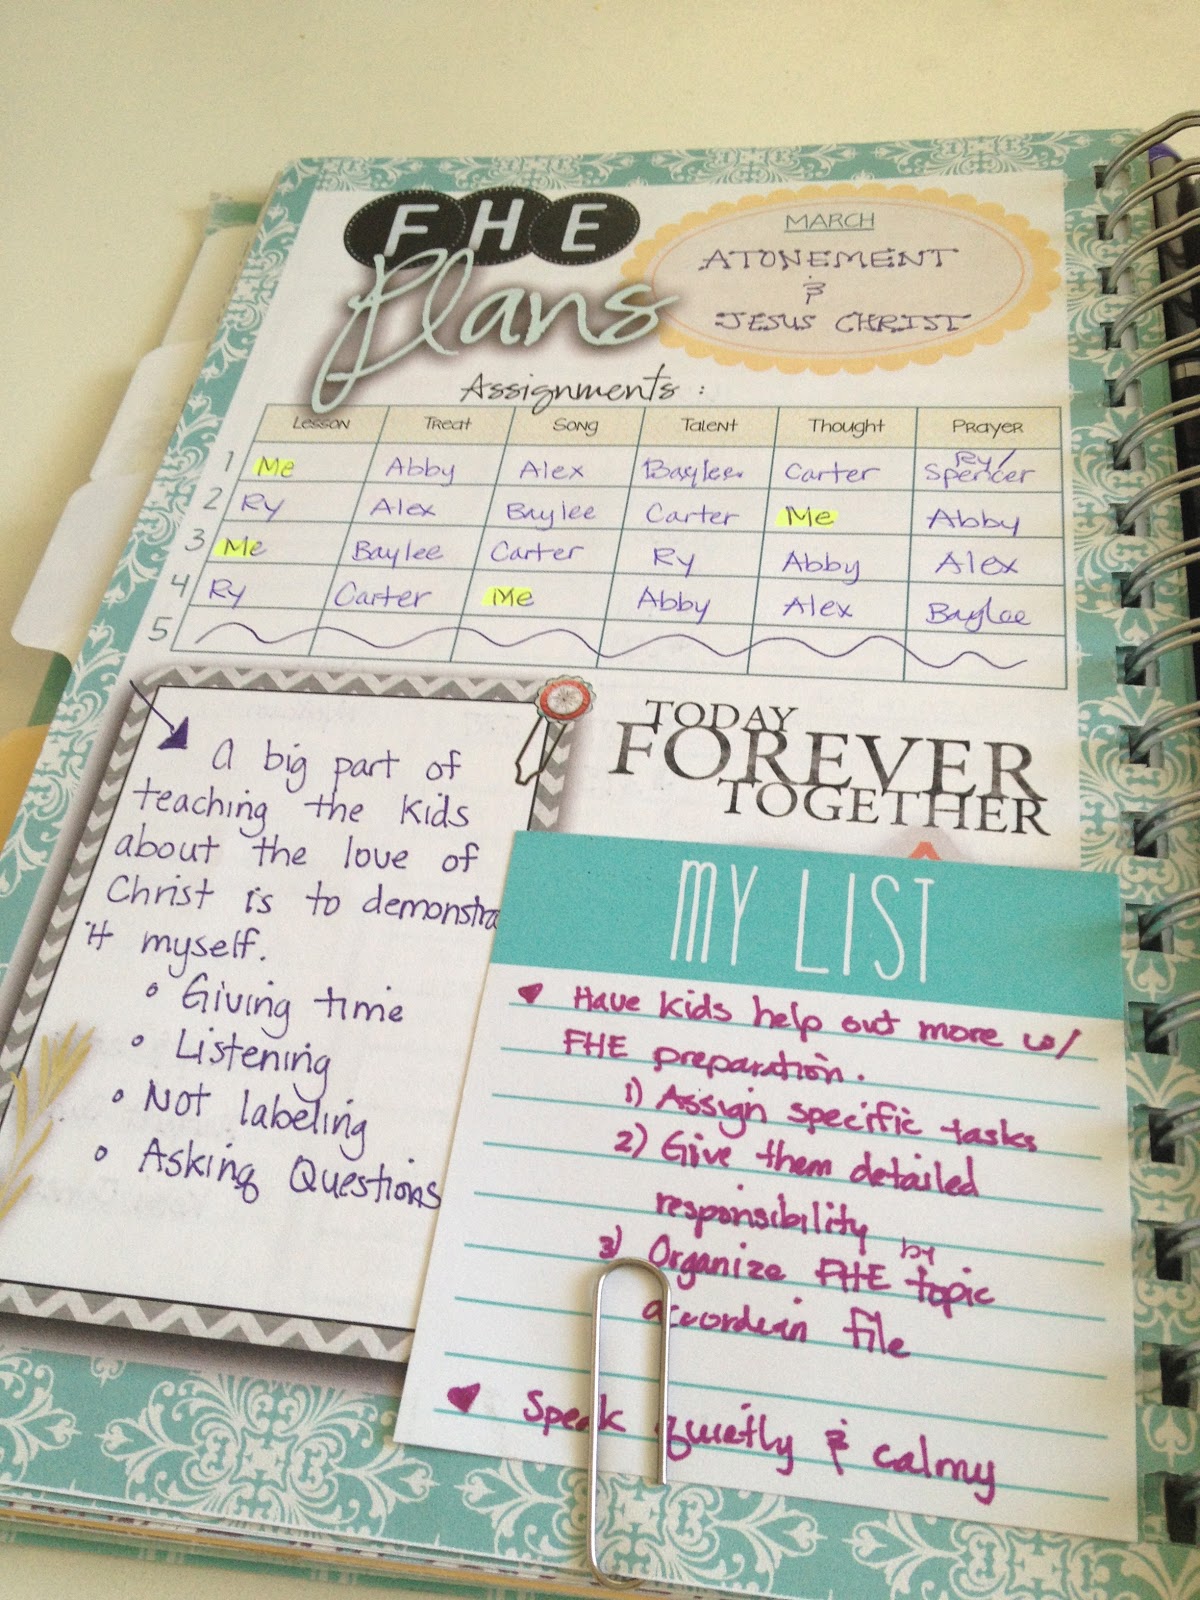 FHE
Plans
MARCH
ATONEMENT
&
JESUS CHRIST
Assignments:
Lesson Treat Song Talent Thought Prayer
1 Me Abby Alex Baylee Carter Ry/Spencer
2 Ry Alex Baylee Carter Me Abby
3 Me Baylee Carter Ry Abby Alex
4 Ry Carter Me Abby Alex Baylee
5
A big part of
teaching the kids
about the love of
Christ is to demonstra
it myself.
• Giving time
• Listening
• Not labeling
• Asking Questions
TODAY
FOREVER
TOGETHER
MY LIST
♥ Have kids help out more w/
FHE preparation.
1) Assign specific tasks
2) Give them detailed
responsibility
3) Organize FHE by topic
accordean file
♥ Speak quietly & calmy